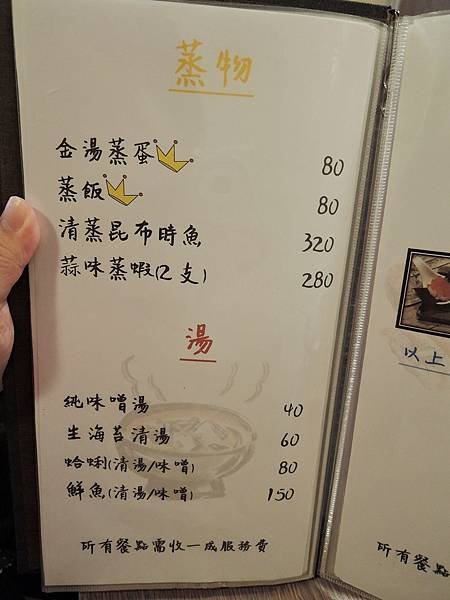 蒸物
金湯蒸蛋 80
蒸飯 80
清蒸昆布時魚 320
蒜味蒸蝦(2支) 280
湯
純味噌湯 40
生海苔清湯 60
蛤蜊(清湯/味噌) 80
鮮魚(清湯/味噌) 150
所有餐點需收一成服務費
以上
所有餐點